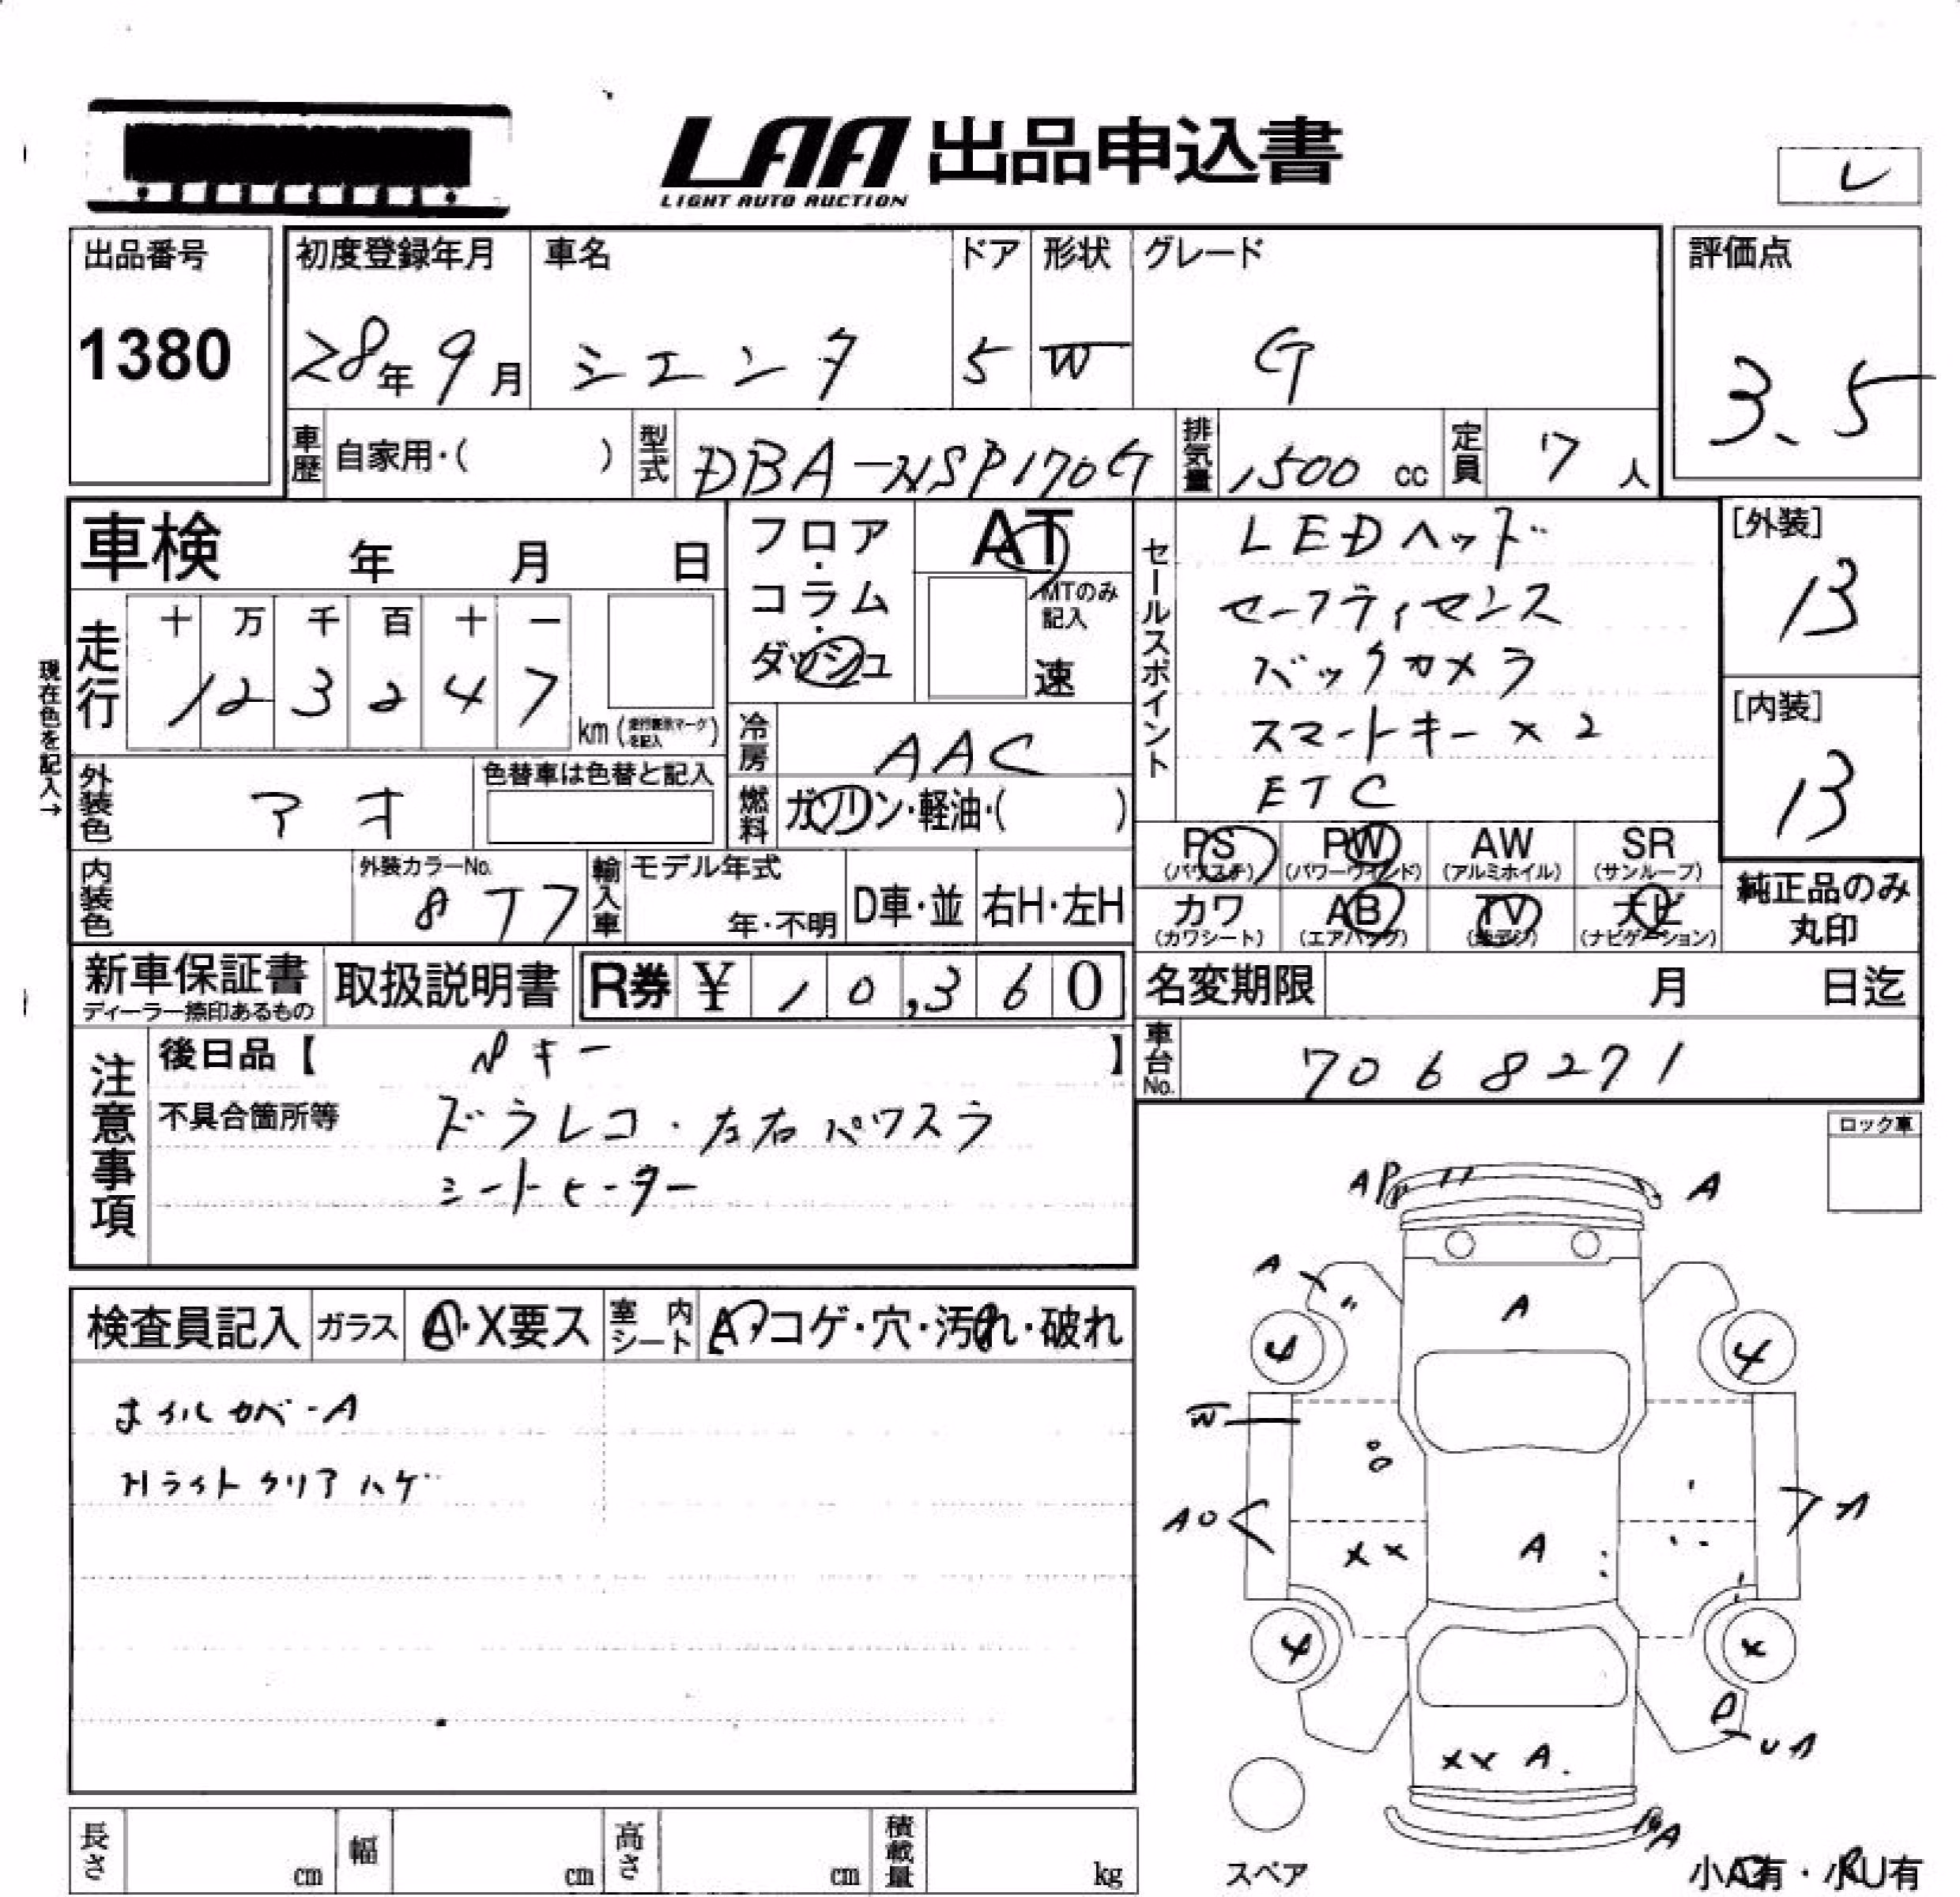 LAA 出品申込書
LIGHT AUTO AUCTION
レ
出品番号
1380
初度登録年月
28年 9月
車名
シエンタ
ドア
5
形状
W
グレード
G
評価点
3.5
車歴 自家用・( )
型式 DBA-NSP170G
排気量 1500 cc
定員 7 人
車検 年 月 日
フロア・コラム・ダッシュ
AT
MTのみ記入
速
走行
十 万 千 百 十 一
1 2 3 2 4 7
km (走行表示マークを記入)
現在色を記入→
外装色 アオ
色替車は色替と記入
冷房 AAC
燃料 ガソリン・軽油・( )
セールスポイント
LEDヘッド
セーフティセンス
バックカメラ
スマートキー×2
ETC
[外装]
13
[内装]
13
内装色
外装カラーNo.
8T7
輸入車
モデル年式
年・不明
D車・並
右H・左H
PS (パワステ)
PW (パワーウインド)
AW (アルミホイル)
SR (サンルーフ)
カワ (カワシート)
AB (エアバッグ)
TV (地デジ)
ナビ (ナビゲーション)
純正品のみ丸印
新車保証書
ディーラー捺印あるもの
取扱説明書
R券 ¥ 10,360
名変期限 月 日迄
車台No. 7068271
注意事項
後日品【 キー 】
不具合箇所等
ドラレコ・左右パワスラ
シートヒーター
ロック車
検査員記入
ガラス A・X要ス
室内シート A・コゲ・穴・汚れ・破れ
ホイルカバーA
Hライトクリアハゲ
AP
A
A
A
4
4
W
AO
A
××
A
4
×
P
UA
×× A
A
スペア
小有・小U有
長さ cm
幅 cm
高さ cm
積載量 kg